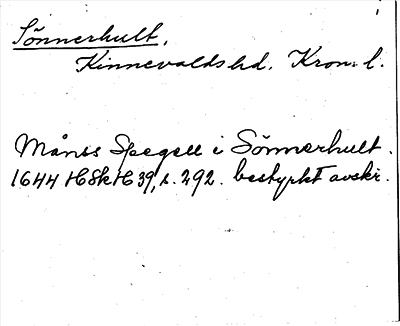 Sönnerhult.
Kinnevalds hd. Kron. l.
Måns Spegell i Sönnerhult.
1644 HSkH 39, s. 292. bestyrkt avskr.